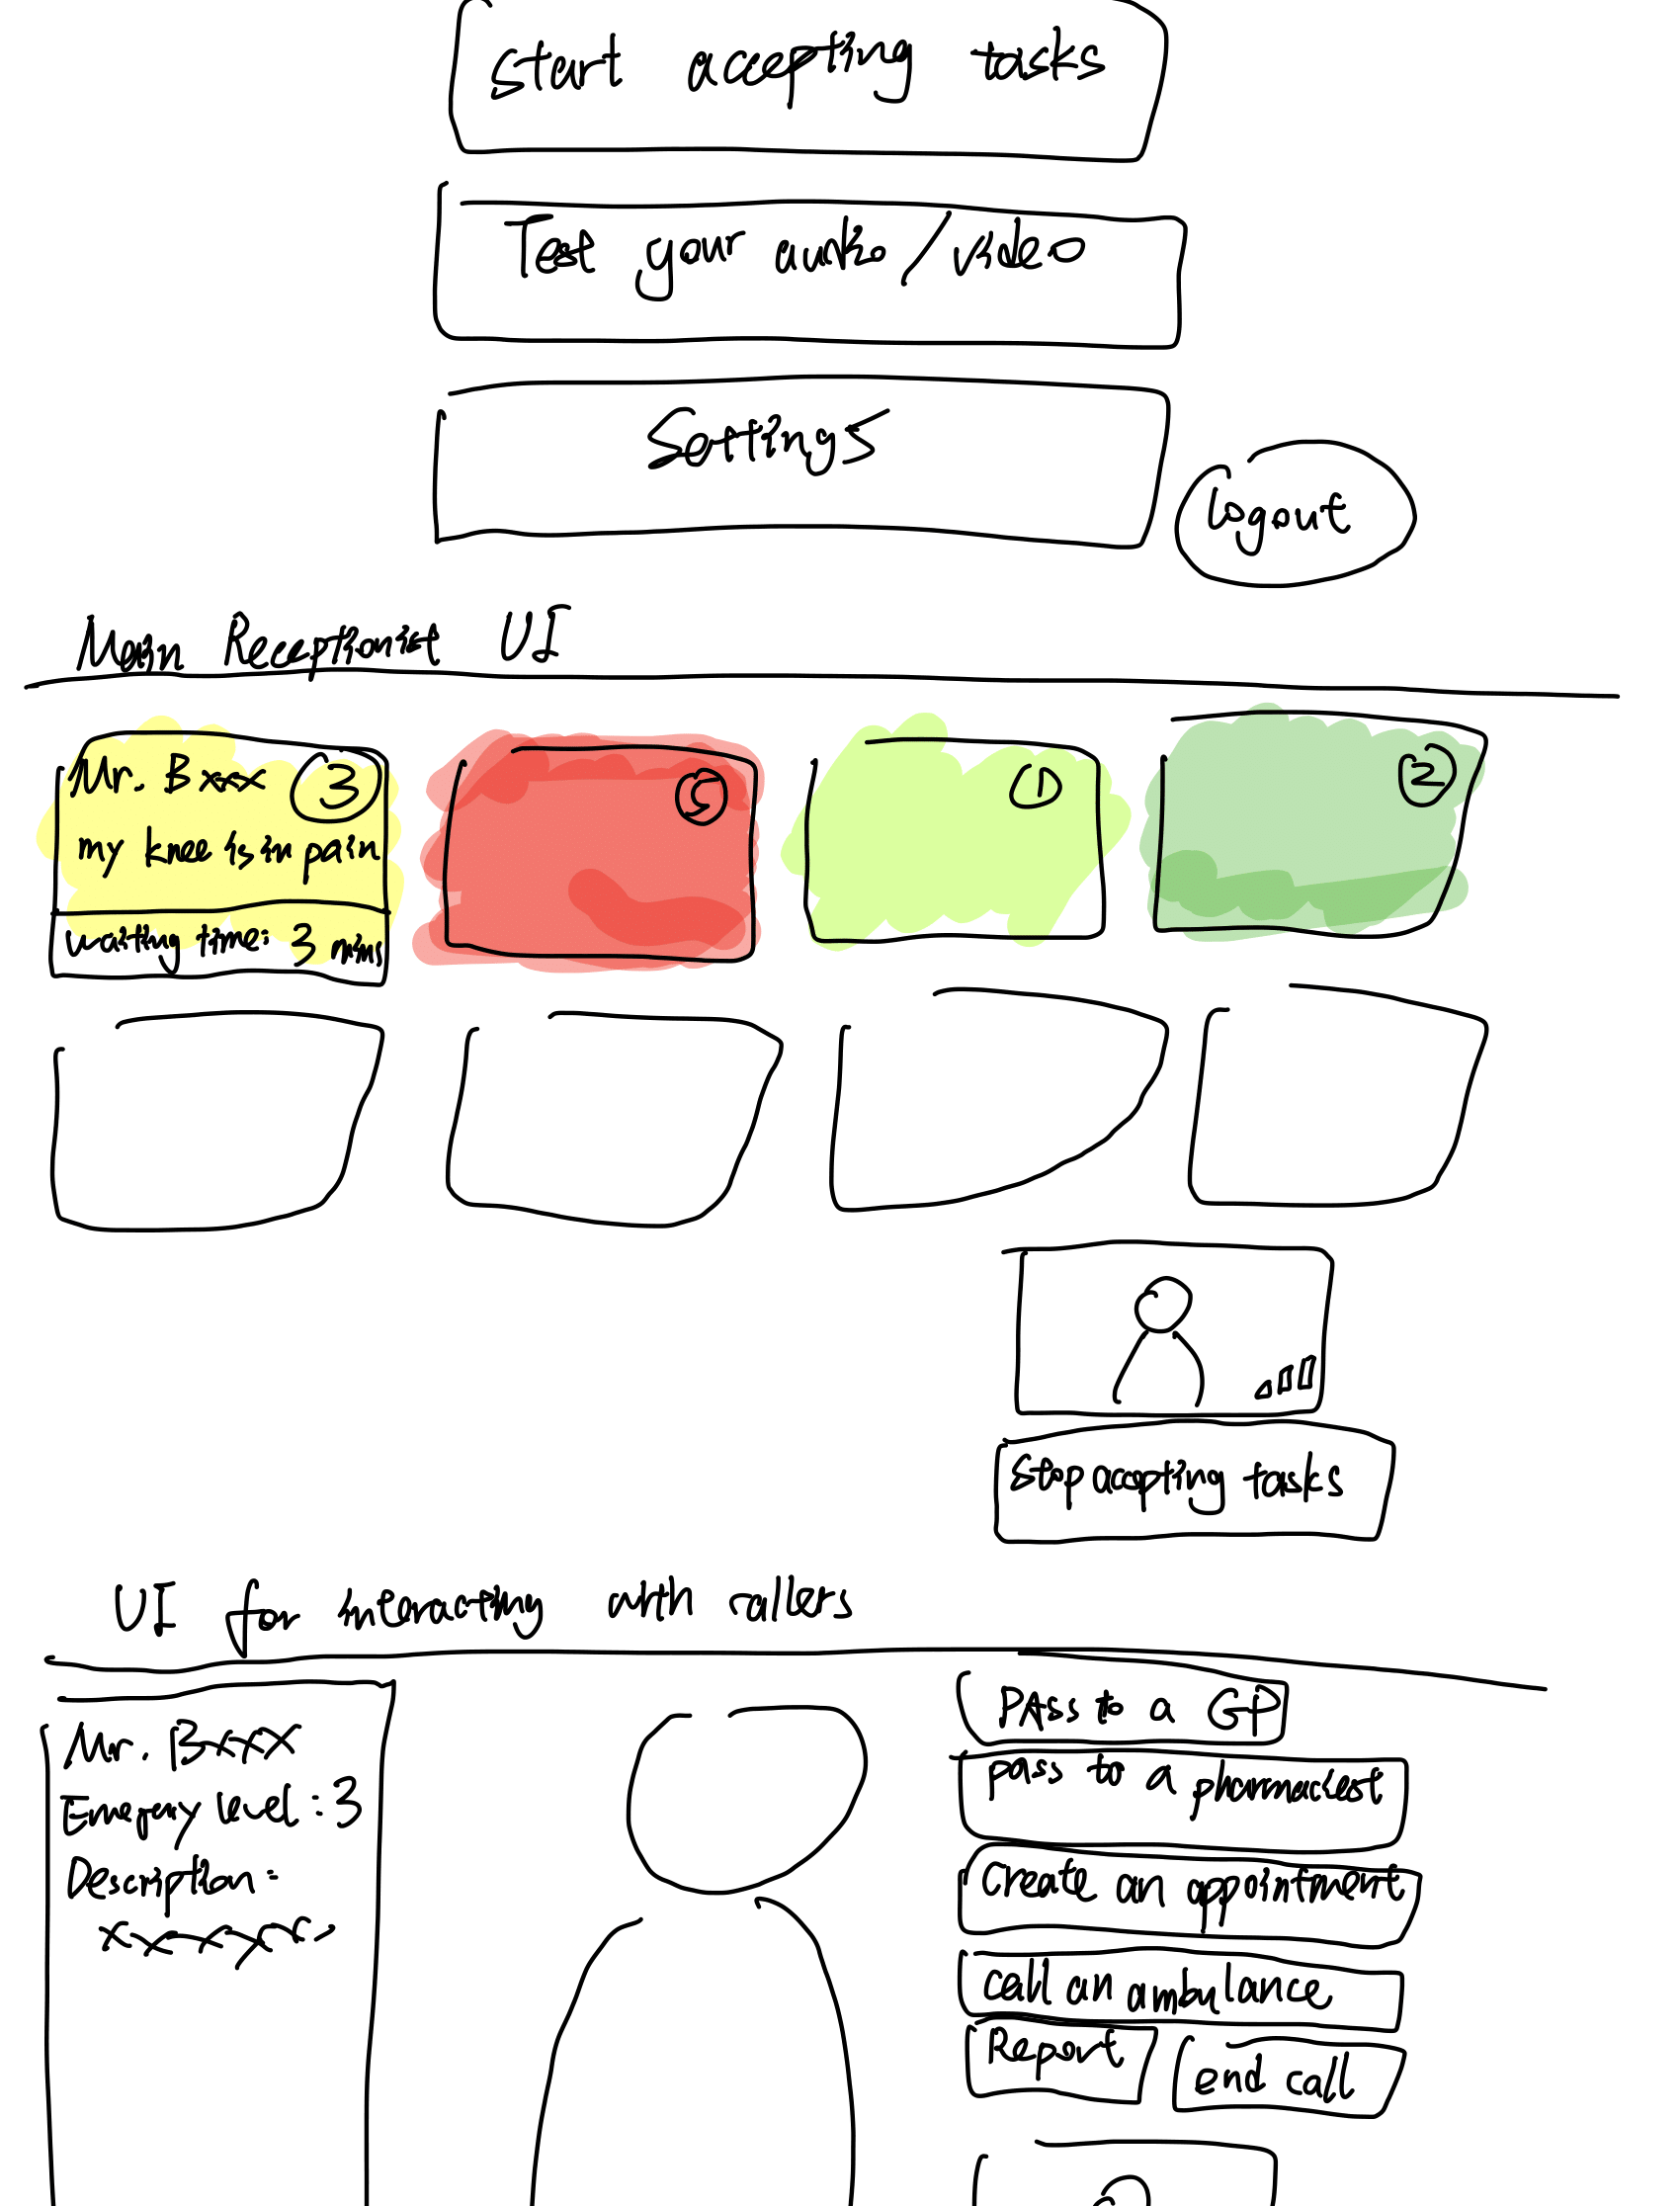 start accepting tasks
Test your audio/video
Settings
logout
Main Receptionist UI
Mr. Bxxx 3
my knee is in pain
waiting time: 3 mins
5
1
2
Stop accepting tasks
UI for interacting with callers
Mr. Bxxxx
Emergency level: 3
Description:
xxxxxx
PAss to a GP
pass to a pharmacist
create an appointment
call an ambulance
Report
end call